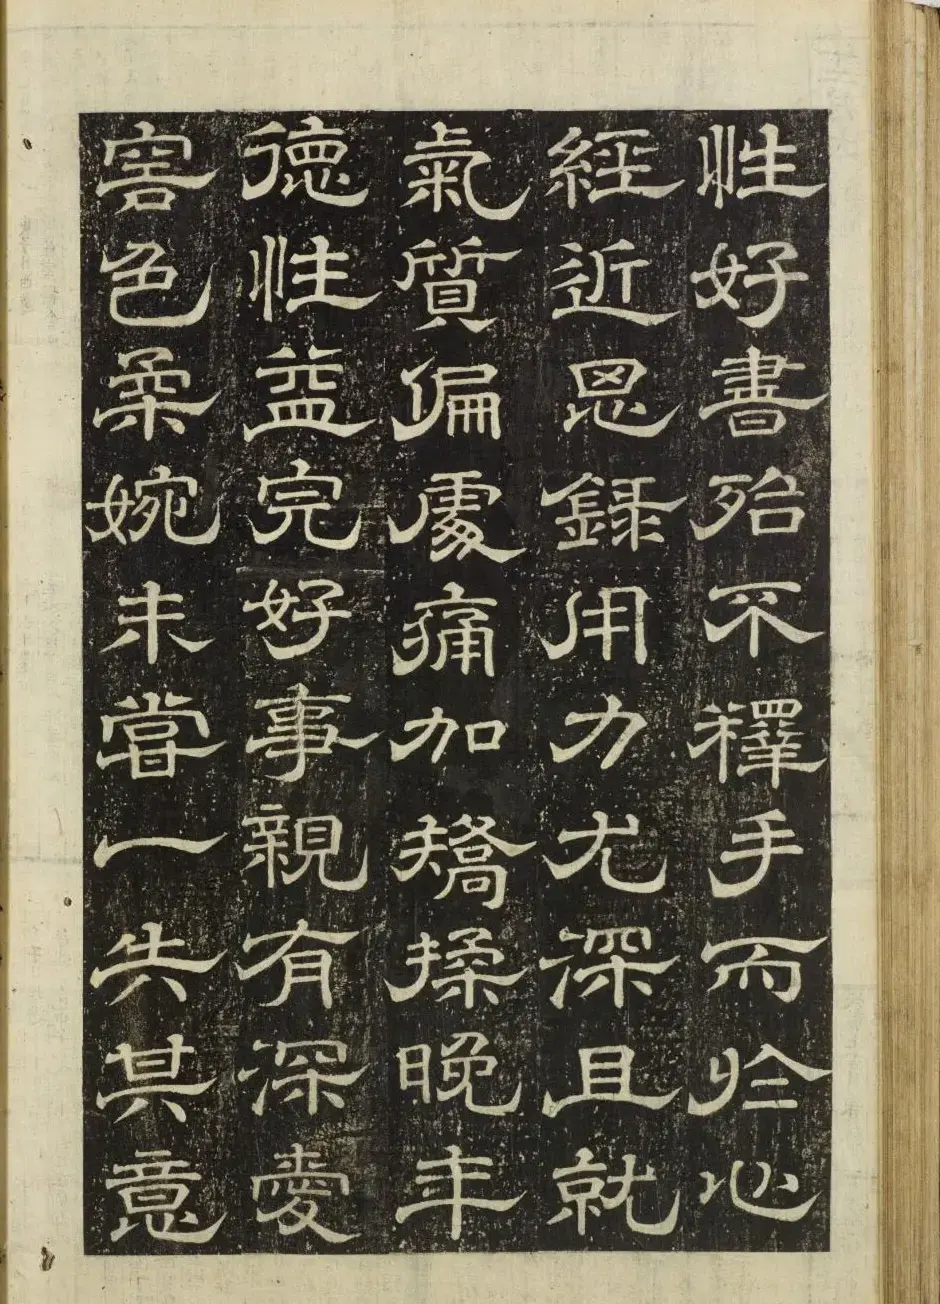 性好書殆不釋手而於心
經近思錄用力尤深且就
氣質偏處痛加矯揉晚年
德性益完好事親有深愛
容色柔婉未嘗一失其意